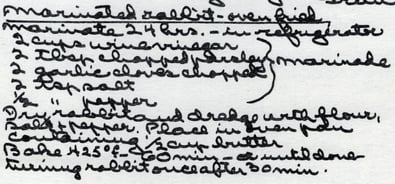 Marinated rabbit - oven fried
marinate 24 hrs. - in refrigerator
2 cups wine vinegar
2 Tbsp. chopped parsley } marinade
2 garlic cloves chopped
2 tsp salt
1/2 " pepper
Dry rabbit and dredge with flour,
salt & pepper. Place in oven pan
containing 1/2 cup butter
Bake 425° - 60 min - or until done
turning rabbit once after 30 min.